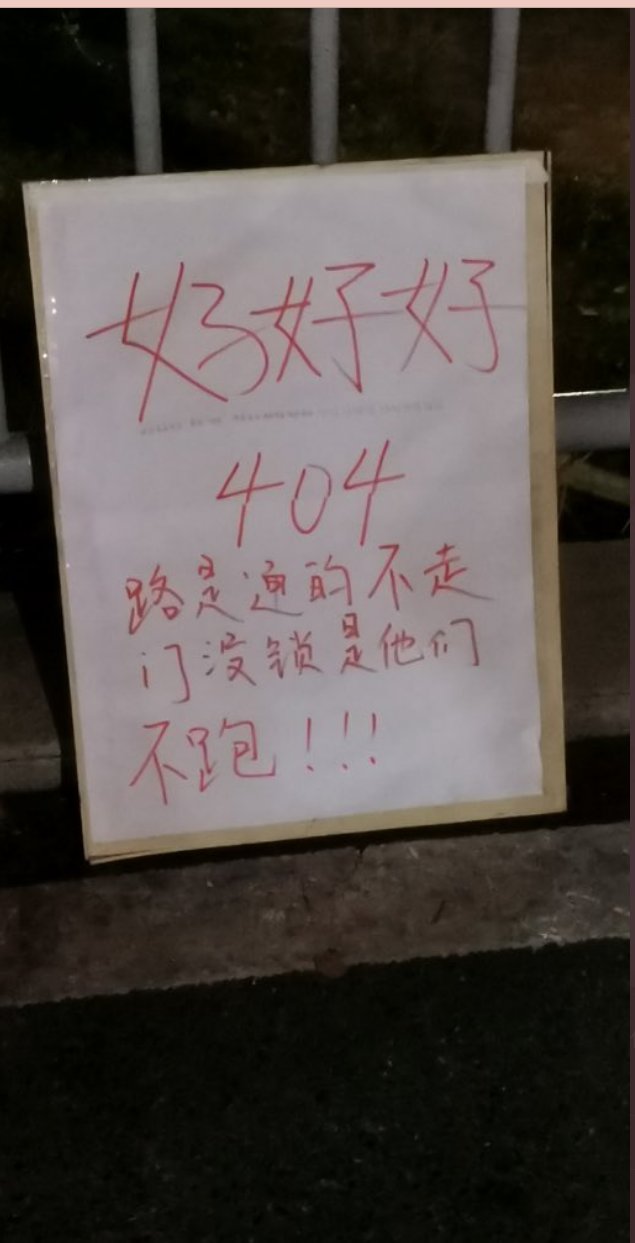 好好好
404
路是通的不走
门没锁是他们
不跑！！！